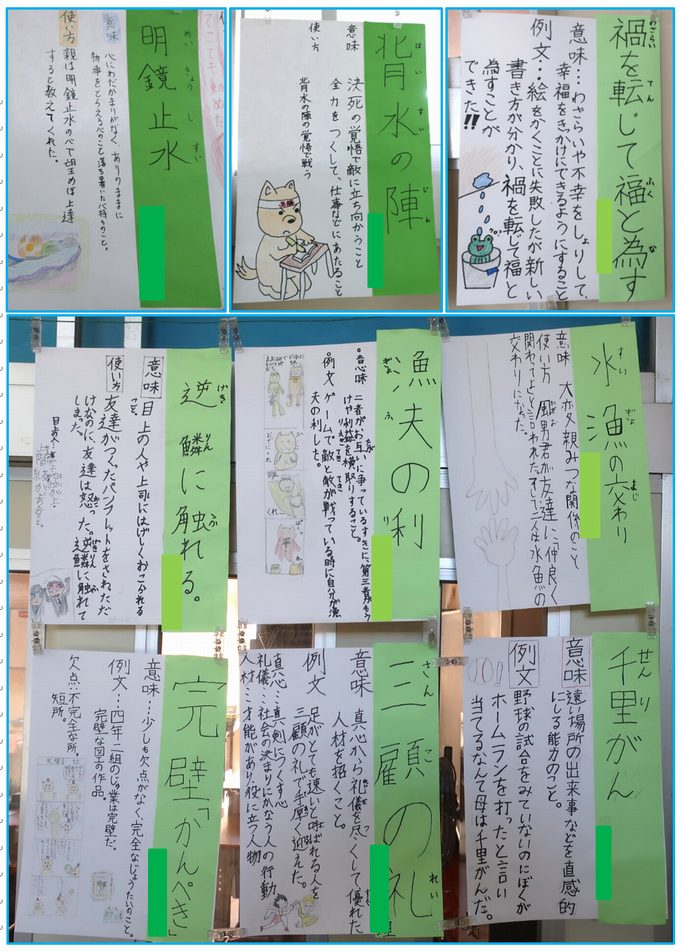 禍を転じて福と為す
わざらい
てん
ふく
な
意味…わざらいや不幸をしょりして、
幸福をきっかけにできるようにすること
例文…絵をかくことに失敗したが新しい
書き方が分かり、禍を転じて福と
為すことが
できた!!
背水の陣
はい
すい
じん
意味
決死の覚悟で敵に立ち向かうこと
全力をつくして、仕事などにあたること
使い方
背水の陣の覚悟で戦う
明鏡止水
めい
きょう
し
すい
意味
心にわだかまりがなく、ありのままに
物事をとらえる心のこと 落ち着いた心持ちのこと。
使い方
親は明鏡止水の心で望めば上達
すると教えてくれた。
水漁の交わり
すい
ぎょ
まじ
意味 大変親みつな関係のこと
使い方
交わりになった。
漁夫の利
ぎょ
ふ
り
意味 二者がお互いに争っているすきに、第三者がもう
けや利益を横取りすること。
例文 ゲームで敵と敵が戦っている時に自分が漁
夫の利しさ。
逆鱗に触れる。
げき
りん
ふ
意味 目上の人や上司にはげしくおこられる
こと。
使い方 友達がつくったパンフレットをさわれただ
けなのに、友達は怒った。逆鱗に触れて
しまった。
千里がん
せん
り
意味 遠い場所の出来事などを直感的
にしる能力のこと。
例文 野球の試合をみていないのにぼくが
ホームランを打ったと言い
当てるなんて母は千里がんだ。
三顧の礼
さん
こ
れい
意味 真心から礼儀を尽くして優れた
人材を招くこと。
例文 足がとても速いと呼ばれる人を
三顧の礼で手厚く迎えた。
真心…真剣につくす心
礼儀…社会の決まりにかなう人の行動
人材…才能があり、役に立つ人物
完璧「かんぺき」
意味…少しも欠点がなく完全なじょうたいのこと。
例文…四年二組のじゅ業は完璧だ。
完璧な図工の作品。
欠点…不完全な所。
短所。